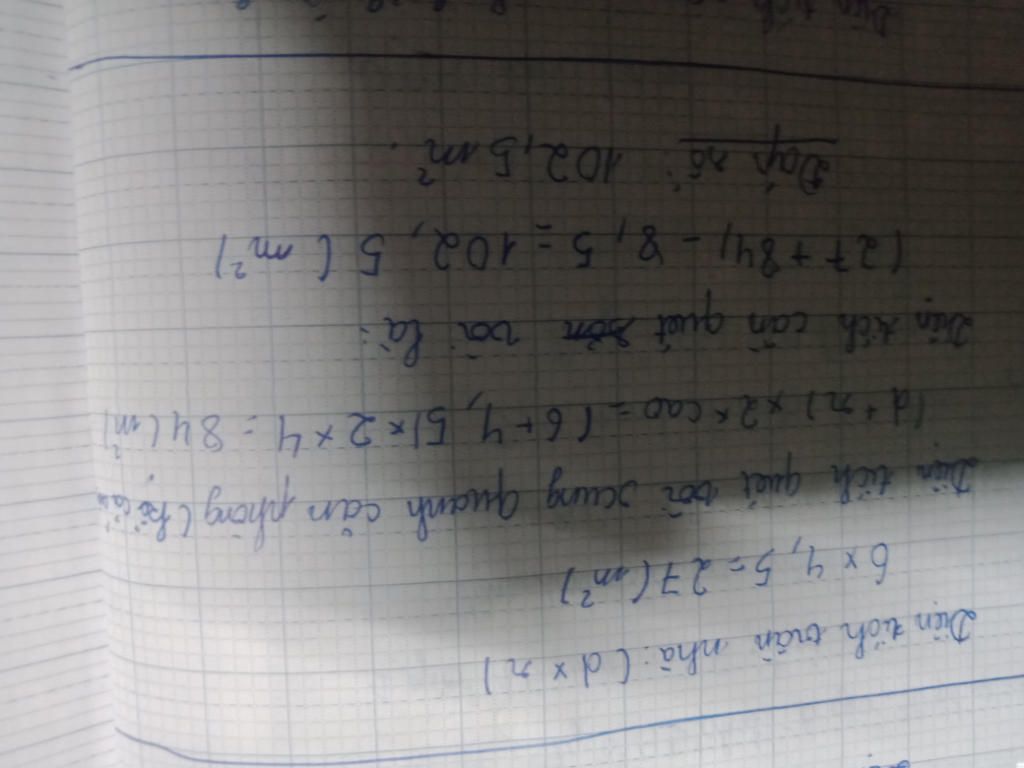 Diện tích trần nhà: (d x r)
6 x 4,5 = 27 (m²)
Diện tích quét vôi xung quanh căn phòng (kể cả cửa
(d + r) x 2 x cao = (6 + 4,5) x 2 x 4 = 84 (m²)
Diện tích cần quét vôi là:
(27 + 84) - 8,5 = 102,5 (m²)
Đáp số: 102,5 m².
Diện tích